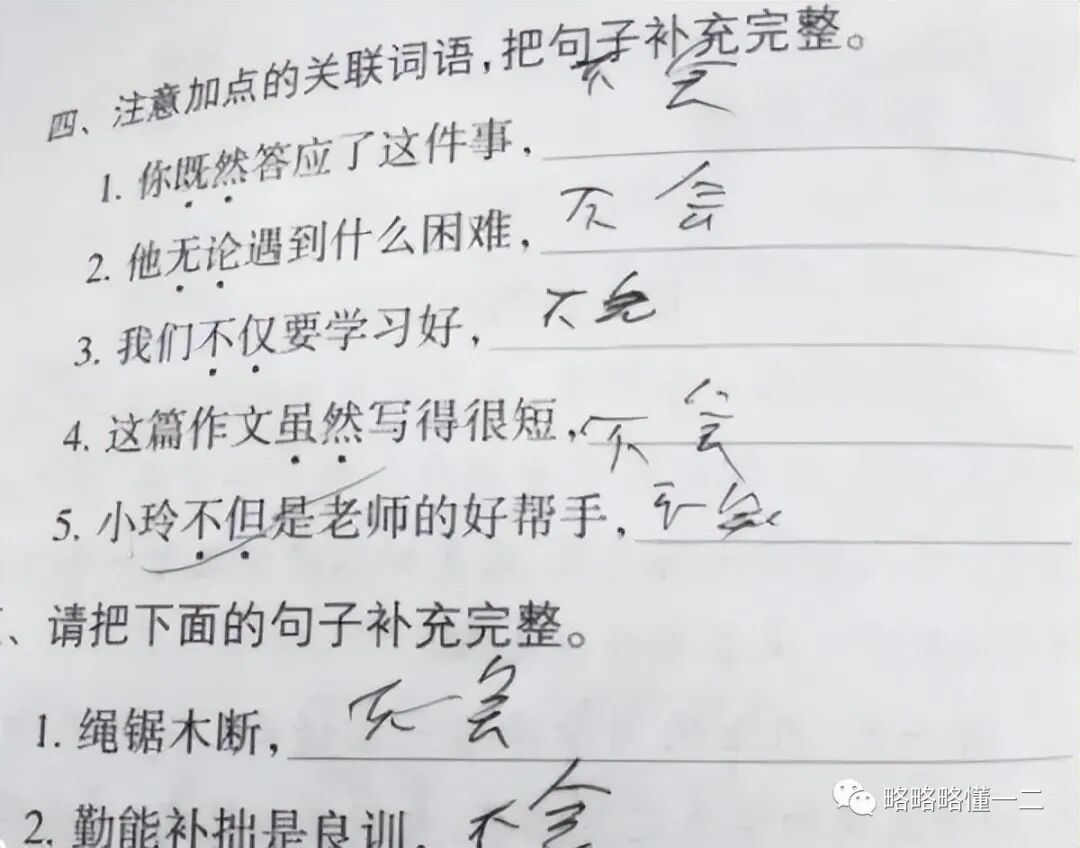 四、注意加点的关联词语,把句子补充完整。
1. 你既然答应了这件事, 不会
2. 他无论遇到什么困难, 不会
3. 我们不仅要学习好, 不会
4. 这篇作文虽然写得很短, 不会
5. 小玲不但是老师的好帮手, 不会
、请把下面的句子补充完整。
1. 绳锯木断, 不会
2. 勤能补拙是良训, 不会
略略略懂一二